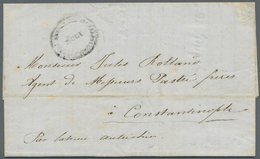 Monsieur Jules Rolland
Agent de Messieurs Pastré frères
à Constantinople
Par bateau autrichien